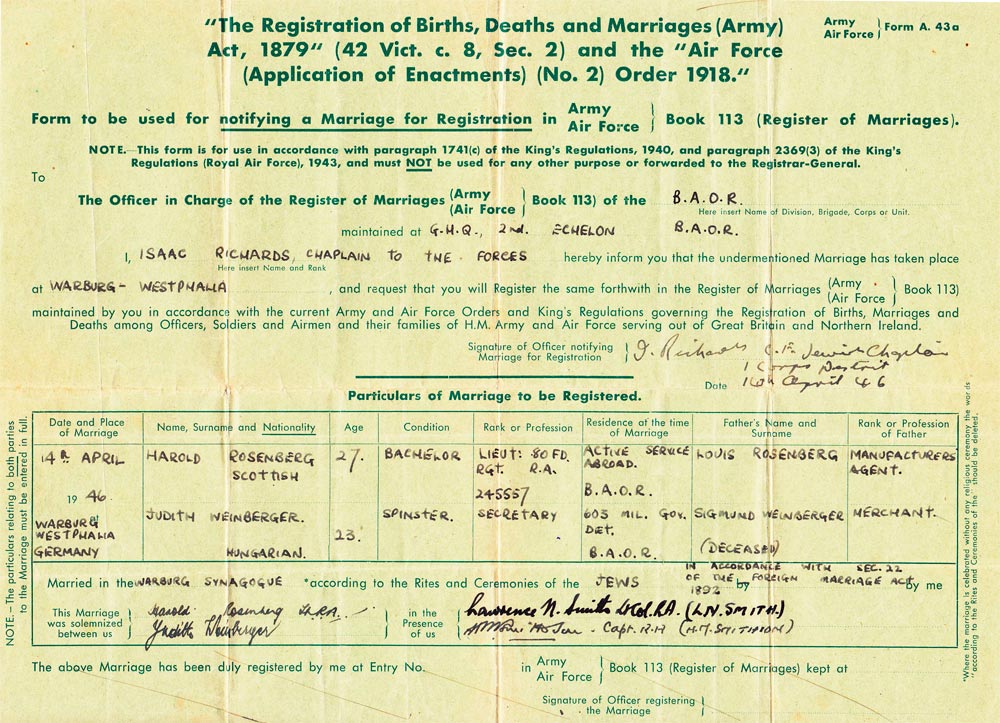 "The Registration of Births, Deaths and Marriages (Army)
Act, 1879" (42 Vict. c. 8, Sec. 2) and the "Air Force
(Application of Enactments) (No. 2) Order 1918."
Army
Air Force
Form A. 43a
Form to be used for notifying a Marriage for Registration in Army Air Force Book 113 (Register of Marriages).
NOTE.—This form is for use in accordance with paragraph 1741(c) of the King's Regulations, 1940, and paragraph 2369(3) of the King's
Regulations (Royal Air Force), 1943, and must NOT be used for any other purpose or forwarded to the Registrar-General.
To
The Officer in Charge of the Register of Marriages (Army (Air Force Book 113) of the B.A.O.R.
Here insert Name of Division, Brigade, Corps or Unit.
maintained at G.H.Q., 2nd. ECHELON B.A.O.R.
I, ISAAC RICHARDS, CHAPLAIN TO THE FORCES hereby inform you that the undermentioned Marriage has taken place
Here insert Name and Rank
at WARBURG - WESTPHALIA, and request that you will Register the same forthwith in the Register of Marriages (Army (Air Force Book 113)
maintained by you in accordance with the current Army and Air Force Orders and King's Regulations governing the Registration of Births, Marriages and
Deaths among Officers, Soldiers and Airmen and their families of H.M. Army and Air Force serving out of Great Britain and Northern Ireland.
Signature of Officer notifying
Marriage for Registration
I. Richards C.F. Jewish Chaplain
1 Corps District
Date 16th April 46
Particulars of Marriage to be Registered.
NOTE.—The particulars relating to both parties
to the Marriage must be entered in full.
Date and Place of Marriage
Name, Surname and Nationality
Age
Condition
Rank or Profession
Residence at the time of Marriage
Father's Name and Surname
Rank or Profession of Father
14th APRIL
1946
WARBURG
WESTPHALIA
GERMANY
HAROLD ROSENBERG
SCOTTISH
27.
BACHELOR
LIEUT: 80 FD.
RGT. R.A.
245557
ACTIVE SERVICE
ABROAD.
B.A.O.R.
LOUIS ROSENBERG
MANUFACTURERS'
AGENT.
JUDITH WEINBERGER.
HUNGARIAN.
23.
SPINSTER.
SECRETARY
603 MIL. GOV.
DET.
B.A.O.R.
SIGMUND WEINBERGER
(DECEASED)
MERCHANT.
Married in the WARBURG SYNAGOGUE *according to the Rites and Ceremonies of the JEWS IN ACCORDANCE WITH SEC. 22
OF THE FOREIGN MARRIAGE ACT
1892 by by me
This Marriage
was solemnized
between us
Harold Rosenberg Lt. RA.
Judith Weinberger
in the
Presence
of us
Lawrence N. Smith Lt Col. RA. (L.N. SMITH.)
Capt. R.H
The above Marriage has been duly registered by me at Entry No. in Army Air Force Book 113 (Register of Marriages) kept at
Signature of Officer registering
the Marriage
*Where the marriage is celebrated without any religious ceremony the words
"according to the Rites and Ceremonies of the" should be deleted.